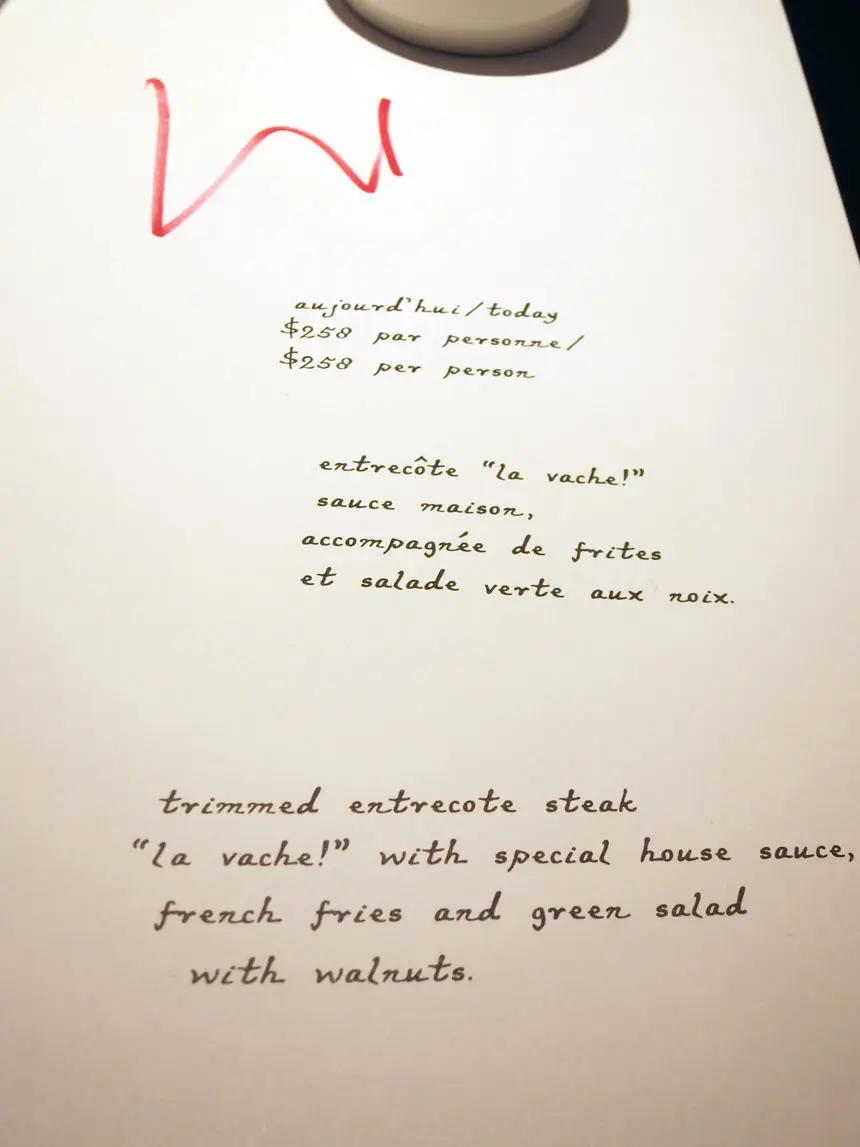 aujourd'hui/today
$258 par personne/
$258 per person
entrecôte "la vache!"
sauce maison,
accompagnée de frites
et salade verte aux noix.
trimmed entrecote steak
"la vache!" with special house sauce,
french fries and green salad
with walnuts.